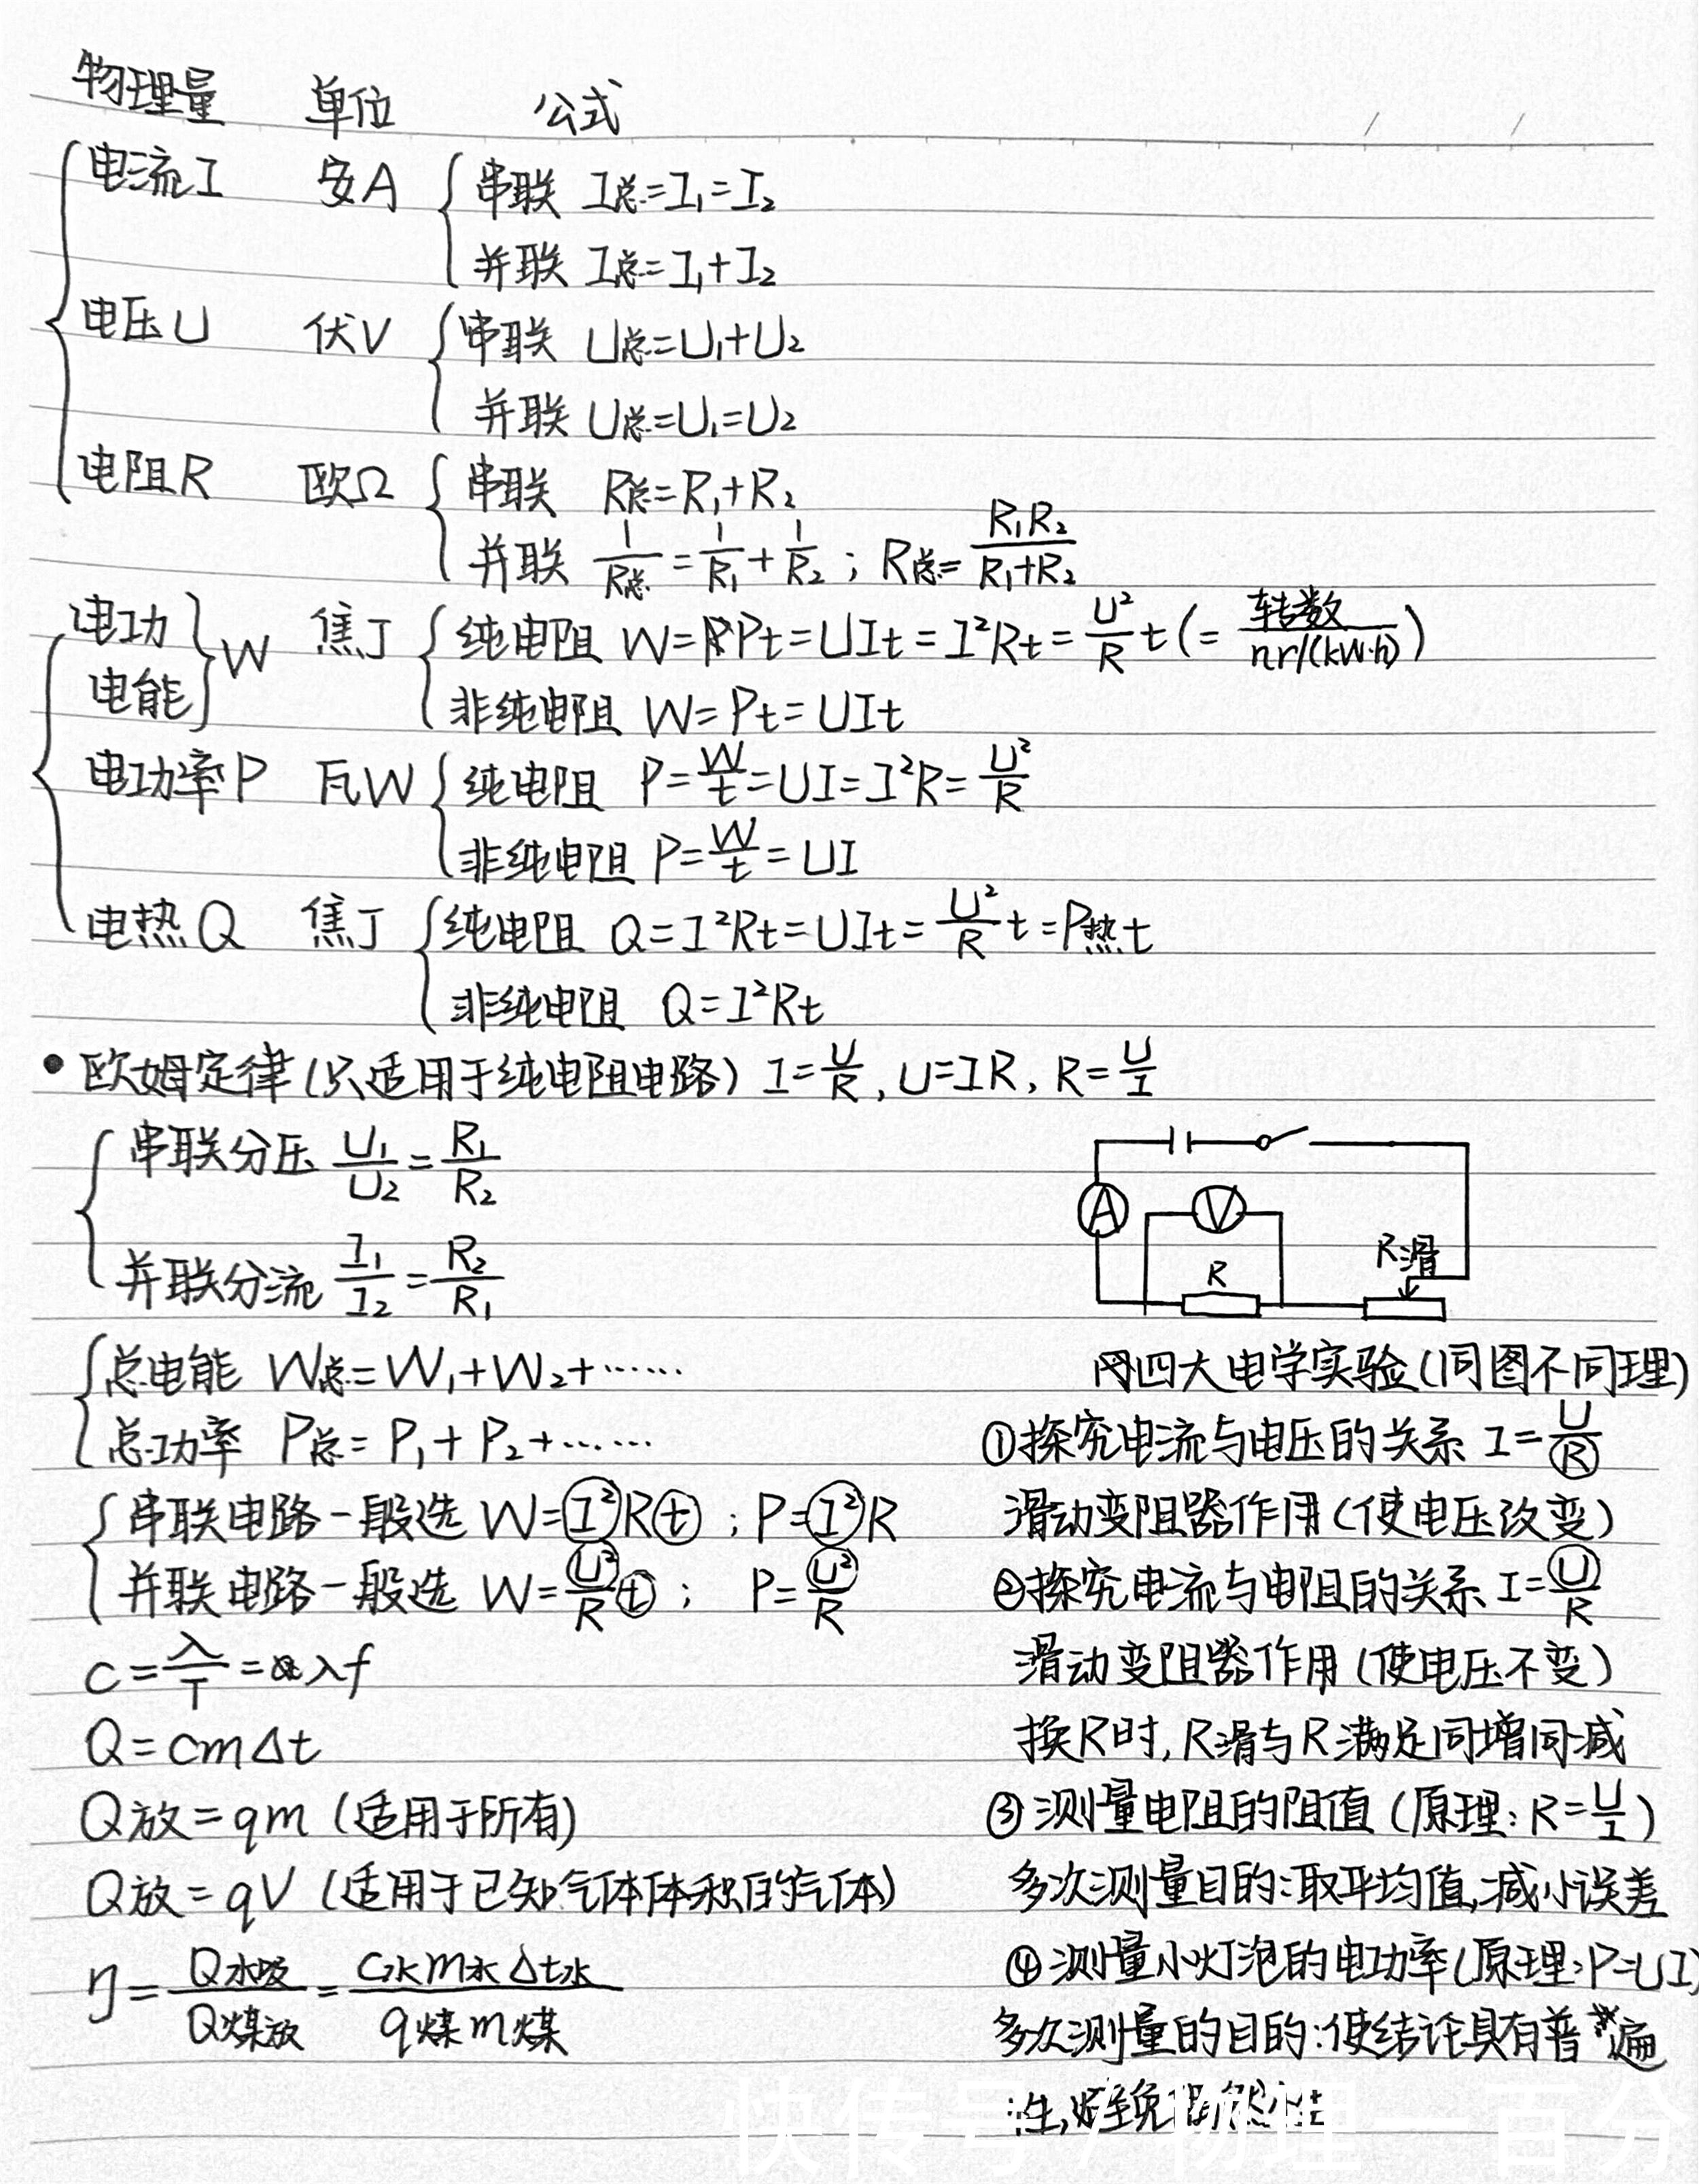 物理量 单位 公式
电流I 安A 串联 I总=I₁=I₂
并联 I总=I₁+I₂
电压U 伏V 串联 U总=U₁+U₂
并联 U总=U₁=U₂
电阻R 欧Ω 串联 R总=R₁+R₂
并联 1/R总=1/R₁+1/R₂；R总=R₁R₂/(R₁+R₂)
电功 电能 W 焦J 纯电阻 W=Pt=UIt=I²Rt=U²/R t(=转数/nr/(kW·h))
非纯电阻 W=Pt=UIt
电功率P 瓦W 纯电阻 P=W/t=UI=I²R=U²/R
非纯电阻 P=W/t=UI
电热Q 焦J 纯电阻 Q=I²Rt=UIt=U²/R t=P热t
非纯电阻 Q=I²Rt
•欧姆定律(只适用于纯电阻电路) I=U/R,U=IR,R=U/I
串联分压 U₁/U₂=R₁/R₂
并联分流 I₁/I₂=R₂/R₁
总电能 W总=W₁+W₂+……
总功率 P总=P₁+P₂+……
串联电路一般选 W=I²Rt；P=I²R
并联电路一般选 W=U²/R t；P=U²/R
c=λ/T=λf
Q=cmΔt
Q放=qm (适用于所有)
Q放=qV (适用于已知气体体积的气体)
η=Q水吸/Q煤放=C水m水Δt水/q煤m煤
A
V
R
R滑
四大电学实验(同图不同理)
①探究电流与电压的关系 I=U/R
滑动变阻器作用(使电压改变)
②探究电流与电阻的关系 I=U/R
滑动变阻器作用(使电压不变)
换R时,R滑与R满足同增同减
③测量电阻的阻值(原理:R=U/I)
多次测量目的:取平均值,减小误差
④测量小灯泡的电功率(原理:P=UI)
多次测量的目的:使结论具有普遍
性,避免偶然性
快传号/物理一百分